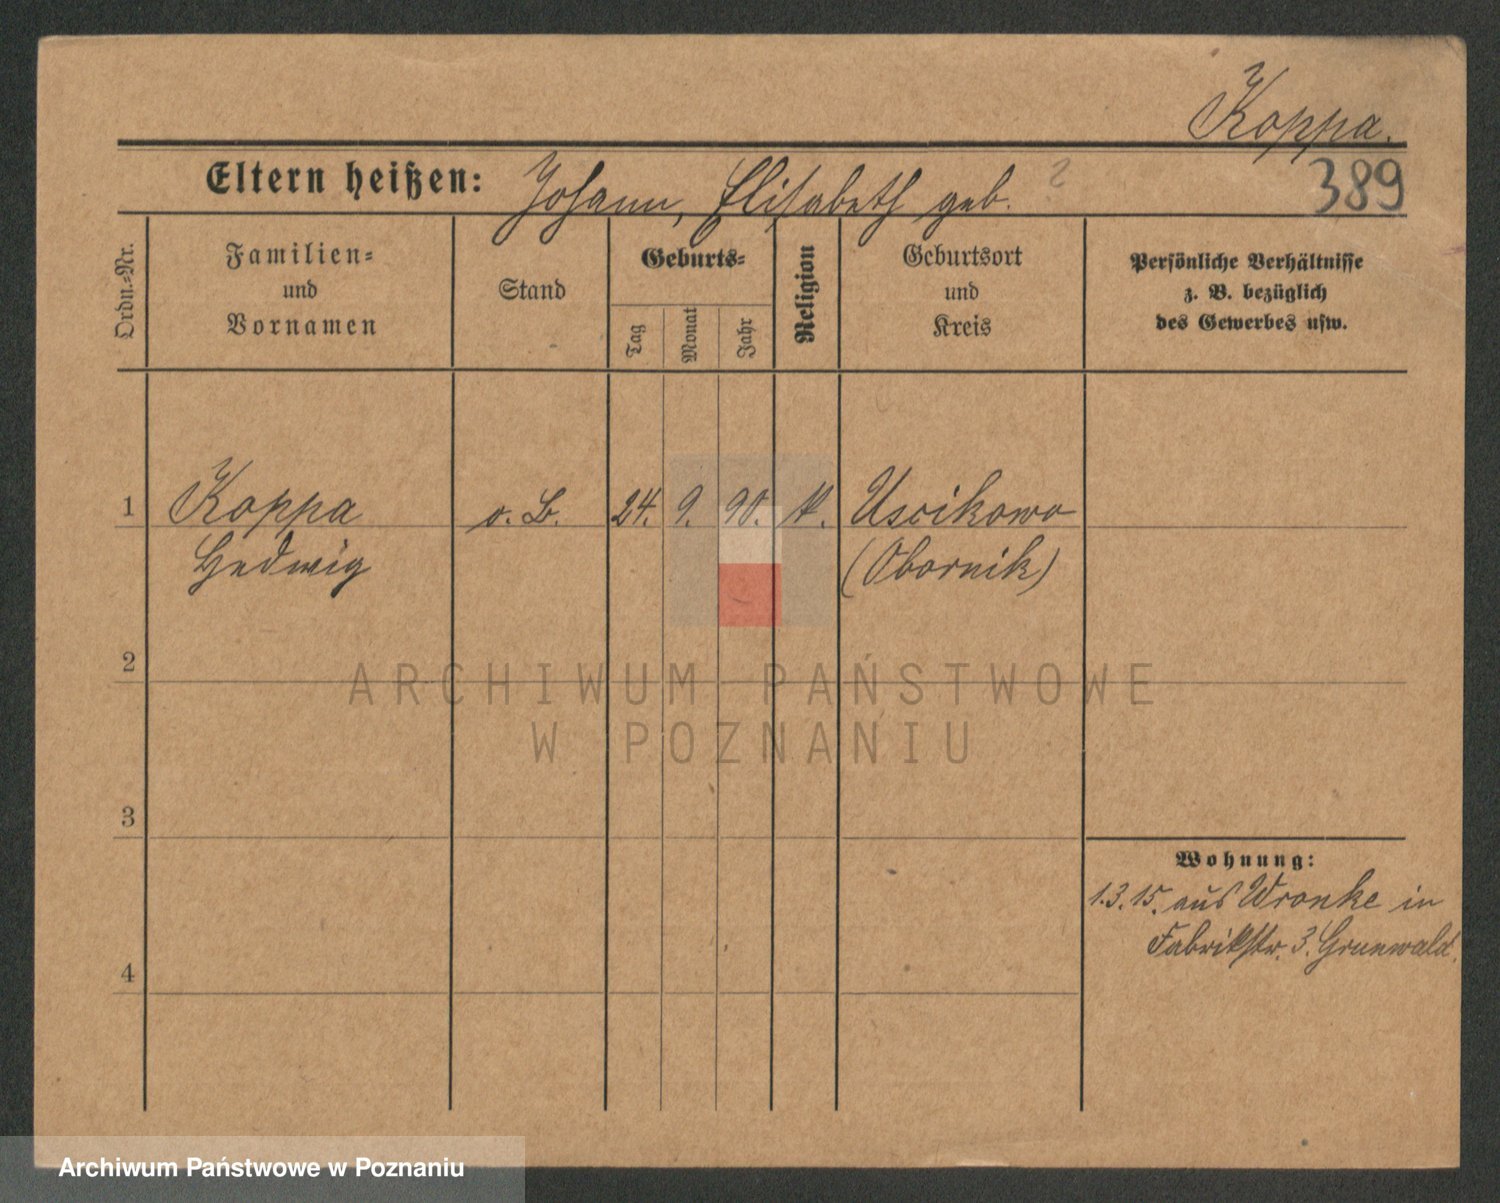 Koppa.
389
Eltern heißen: Johann, Elisabeth geb. ?
Ordn.-Nr.
Familien-
und
Vornamen
Stand
Geburts-
Tag
Monat
Jahr
Religion
Geburtsort
und
Kreis
Persönliche Verhältnisse
z. B. bezüglich
des Gewerbes usw.
1 Koppa o. B. 24. 9. 90. k. Uscikowo
Hedwig (Obornik)
2
ARCHIWUM PAŃSTWOWE
W POZNANIU
3
Wohnung:
1.3.15. aus Wronke in
Fabrikstr. 3. Grunwald.
4
Archiwum Państwowe w Poznaniu